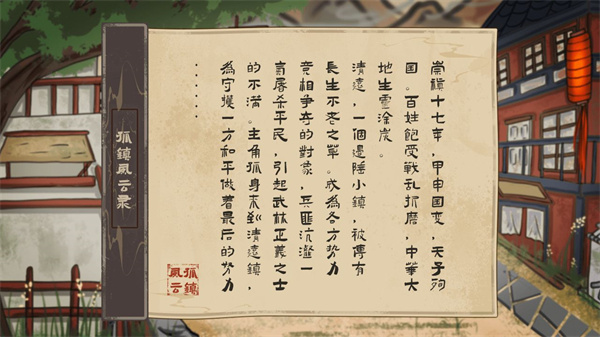 孤鎮風云录
崇禎十七年，甲申国变，天子殉
国。百姓飽受戰乱折磨，中華大
地生靈涂炭。
清遠，一個邊陲小鎮，被傳有
長生不老之草。成為各方势力
竞相争夺的對象，兵匪沆瀣一
氣屠杀平民，引起武林正義之士
的不满。主角孤身来到清遠鎮，
為守護一方和平做着最后的努力
......
孤鎮
風云